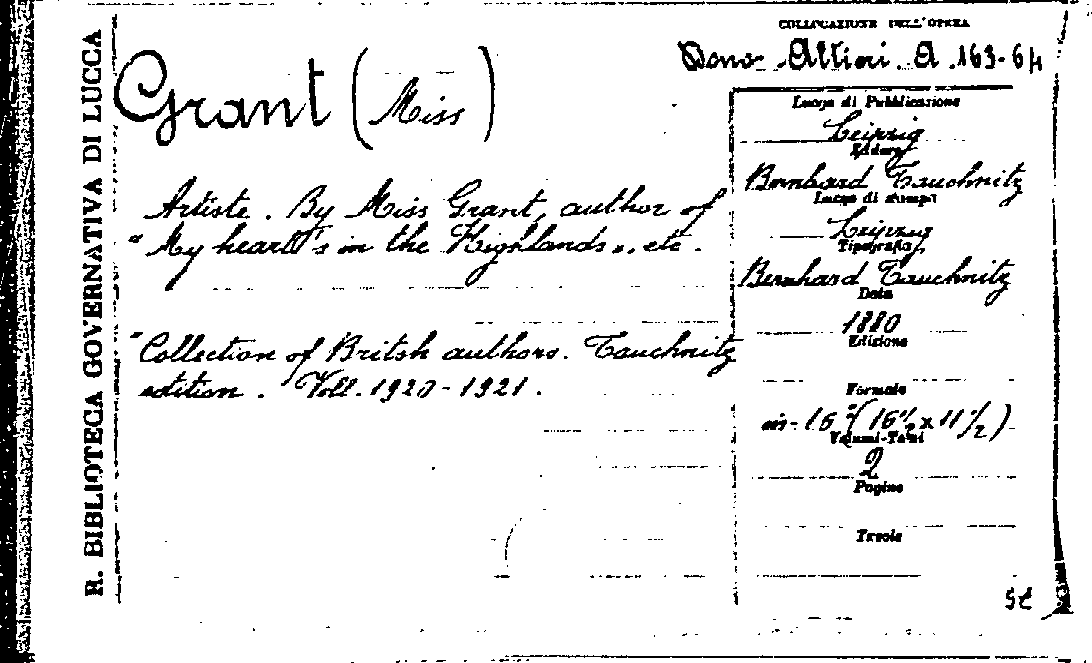 R. BIBLIOTECA GOVERNATIVA DI LUCCA
COLLOCAZIONE DELL'OPERA
Dono Altieri. A. 163-64
Grant (Miss)
Artiste. By Miss Grant, author of
"My heart's in the Highlands", etc.
"Collection of British authors. Tauchnitz
edition. Voll. 1920-1921.
Luogo di Pubblicazione
Leipzig
Editore
Bernhard Tauchnitz
Luogo di stampa
Leipzig
Tipografia
Bernhard Tauchnitz
Data
1880
Edizione
Formato
in-16° (16½ x 11½)
Volumi-Tomi
2
Pagine
Tavole